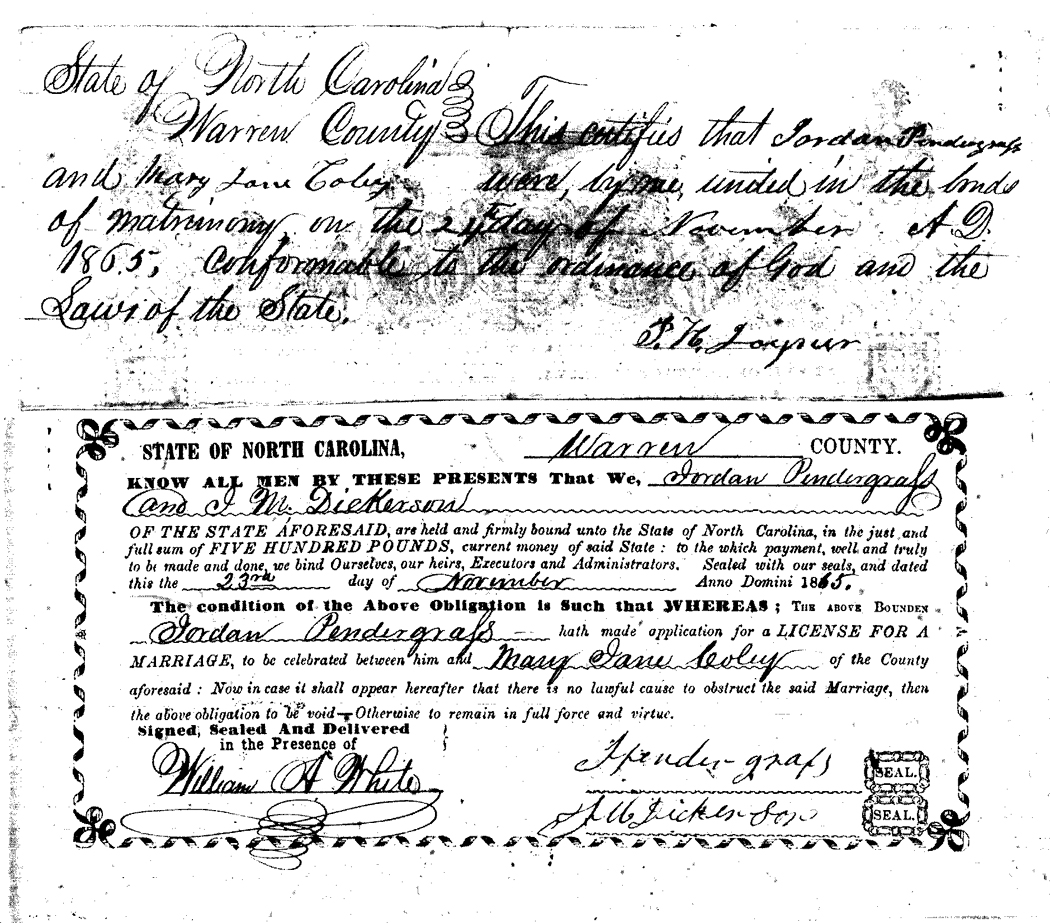 State of North Carolina
Warren County This certifies that Jordan Pendergrass
and Mary Jane Coley were, by me, united in the bonds
of matrimony, on the 24th day of November A.D.
1865, conformable to the ordinance of God and the
Laws of the State.
P. H. Joyner
STATE OF NORTH CAROLINA, Warren COUNTY.
KNOW ALL MEN BY THESE PRESENTS That We, Jordan Pendergrass
and J. M. Dickerson
OF THE STATE AFORESAID, are held and firmly bound unto the State of North Carolina, in the just and
full sum of FIVE HUNDRED POUNDS, current money of said State : to the which payment, well and truly
to be made and done, we bind Ourselves, our heirs, Executors and Administrators. Sealed with our seals, and dated
this the 23rd day of November Anno Domini 1865.
The condition of the Above Obligation is Such that WHEREAS ; THE ABOVE BOUNDEN
Jordan Pendergrass hath made application for a LICENSE FOR A
MARRIAGE, to be celebrated between him and Mary Jane Coley of the County
aforesaid : Now in case it shall appear hereafter that there is no lawful cause to obstruct the said Marriage, then
the above obligation to be void—Otherwise to remain in full force and virtue.
Signed, Sealed And Delivered
in the Presence of
William A White
J Pendergrass SEAL.
J M Dickerson SEAL.